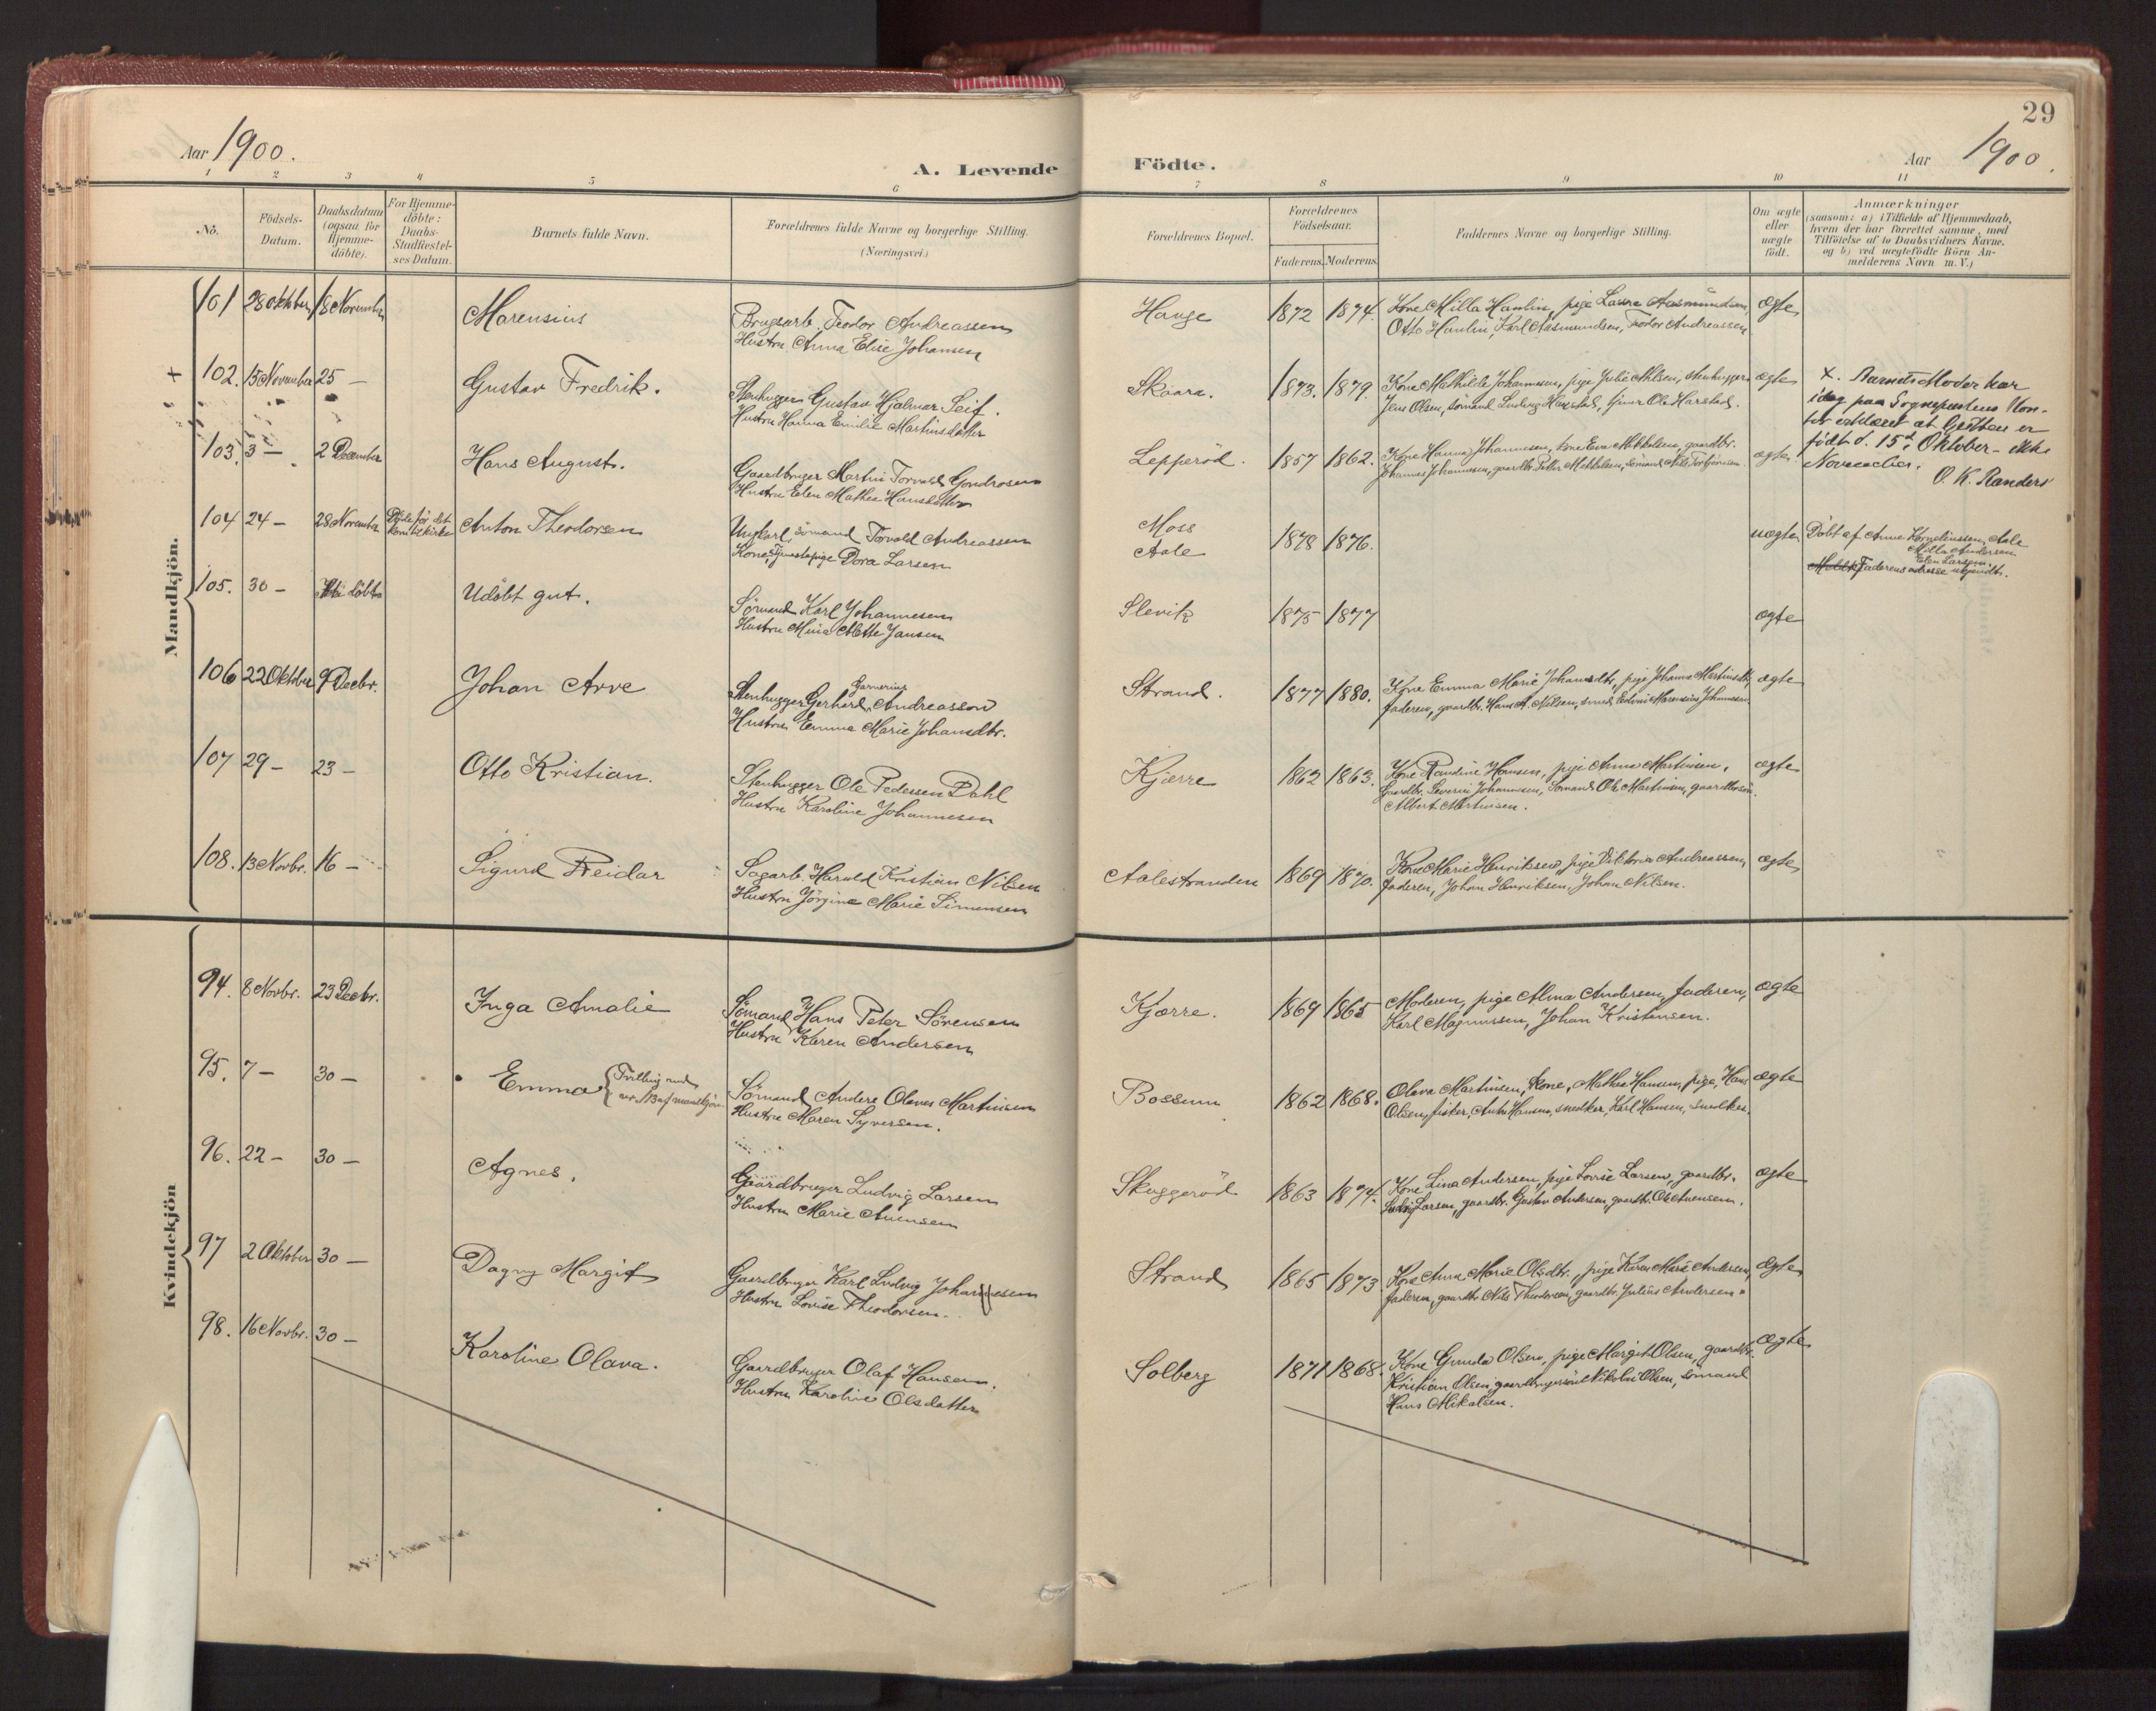 Aar 1900.
A. Levende
1 2 3 4 5 6
No.
Födsels-
Datum.
Daabsdatum
(ogsaa for
Hjemme-
döbte).
For Hjemme-
döbte:
Daabs-
Stadfæstel-
ses Datum.
Barnets fulde Navn.
Forældrenes fulde Navne og borgerlige Stilling.
(Næringsvei.)
Mandkjön.
101 28 oktober 18 November Marensius
Brugsarb. Teodor Andreassen
Hustru Anna Elise Johansen
+ 102. 15 November 25 — Gustav Fredrik.
Stenhugger Gustav Hjalmar Seif.
Hustru Hanna Emilie Martinsdatter
103. 3 — 2 December Hans August.
Gaardbruger Martin Torvald
Hustru Elen Mathea Hansdatter
104 24 — 28 November Döde før det
kom til kirke
Anton Theodorsen
Ungkarl, sömand Torvald Andreassen
Kone, Tjenestepige Dora Larsen
105. 30 — Ikke döbt Udöbt gut.
Sömand Karl Johannesen
Hustru Mina Mette Jansen
106 22 Oktober 9 Decbr. Johan Arve
Stenhugger Gerhard Garnerius Andreasson
Hustru Emma Marie Johansdtr.
107 29 — 23 — Otto Kristian.
Stenhugger Ole Pedersen Dahl
Hustru Karoline Johannesen
108. 13 Novbr. 16 — Sigurd Reidar
Sagarb. Harald Kristian Nilsen
Hustru Jörgine Marie Simensen
Kvindekjön
94. 8 Novbr. 23 Decbr. Inga Amalie
Sömand Hans Peter Sörensen
Hustru Karen Andersen
95. 7 — 30 — Emma {Tvilling med
nr. 113 af mandkjön.
Sömand Anders Olaves Martinsen
Hustru Maren Syversen.
96. 22 — 30 — Agnes.
Gaardbruger Ludvig Larsen
Hustru Marie Auensen
97 2 Oktober 30 — Dagny Margit
Gaardbruger Karl Ludvig Johannesen
Hustru Lovise Theodorsen.
98. 16 Novbr. 30 — Karoline Olava.
Gaardbruger Olaf Hansen.
Hustru Karoline Olsdatter
29
Födte.
Aar 1900.
7 8 9 10 11
Forældrenes Bopæl.
Forældrenes
Födselsaar.
Faderens. Moderens.
Faddernes Navne og borgerlige Stilling.
Om ægte
eller
uægte
födt.
Anmærkninger
(saasom: a) i Tilfælde af Hjemmedaab,
hvem der har forrettet samme, med
Tilföielse af to Daabsvidners Navne.
og b) ved uægtefödte Börn An-
melderens Navn m. V.)
Hauge 1872 1874. Kone Milla Hamlin, pige Laura Aasmundsen, ægte
Otto Hamlin, Karl Aasmundsen, Teodor Andreassen
Skaara. 1873. 1879. Kone Mathilde Johannesen, pige Julie Nilsen, stenhugger ægte
Jens Olsen, sömand Ludvig Harstad, Ole Harstad.
x. Barnets Moder har
idag paa Sogneprestens Kon-
tor erklæret at Gutten er
födt d. 15de Oktober - ikke
November.
O. K. Randers
Lepperöd. 1857 1862. Kone Hanna Johannesen, kone Eva Mikkelsen, gaardbr. ægte
Johannes Johannesen, gaardbr. Mikkelsen, sömand Nils Torbjörnsen.
Moss
Aale
1878 1876. uægte
Döbt af Anne Korneliussen, Aale
Milla Andersen
Elen Larsen.
Faderens adresse ukjendt.
Slevik 1875 1877 ægte
Strand. 1877 1880. Kone Emma Marie Johansdtr, pige Johanne Martinsdtr, ægte
faderen, gaardbr. Hans A. Nilsen, smed Edvin Marensius Johannesen
Kjærre 1862 1863. Kone Randine Hansen, pige Anna Martinsen, ægte
Gaardbr. Severin Johannesen, Sömand Ole Martinsen, gaardbrsön.
Albert Martinsen.
Aalestranden 1869 1870. Kone Marie Henriksen, pige Viktoria Andreassen, ægte
faderen, Johan Henriksen, Johan Nilsen.
Kjærre. 1869 1865 Moderen, pige Alma Andersen, faderen, ægte
Karl Magnussen, Johan Kristensen.
Bossum 1862 1868. Olava Martinsen, kone, Mathea Hansen, pige, Hans ægte
Olsen, fisker, Anton Hansen, snedker, Karl Hansen, snedker.
Skuggeröd 1863 1874. Kone Lina Andersen, pige Lovise Larsen, gaardbr. ægte
Ludvig Larsen, gaardbr. Gustav Andersen, gaardbr. Ole Auensen.
Strand 1865 1873 Kone Anna Marie Olsdtr., pige Karen Marie Andersen, ægte
faderen, gaardbr. Nils Theodorsen, gaardbr. Julius Andersen.
Solberg 1871 1868. Kone Gunda Olsen, pige Margit Olsen, gaardbr. ægte
Kristian Olsen, gaardbrugersön Nikolai Olsen, sömand
Hans Mikalsen.